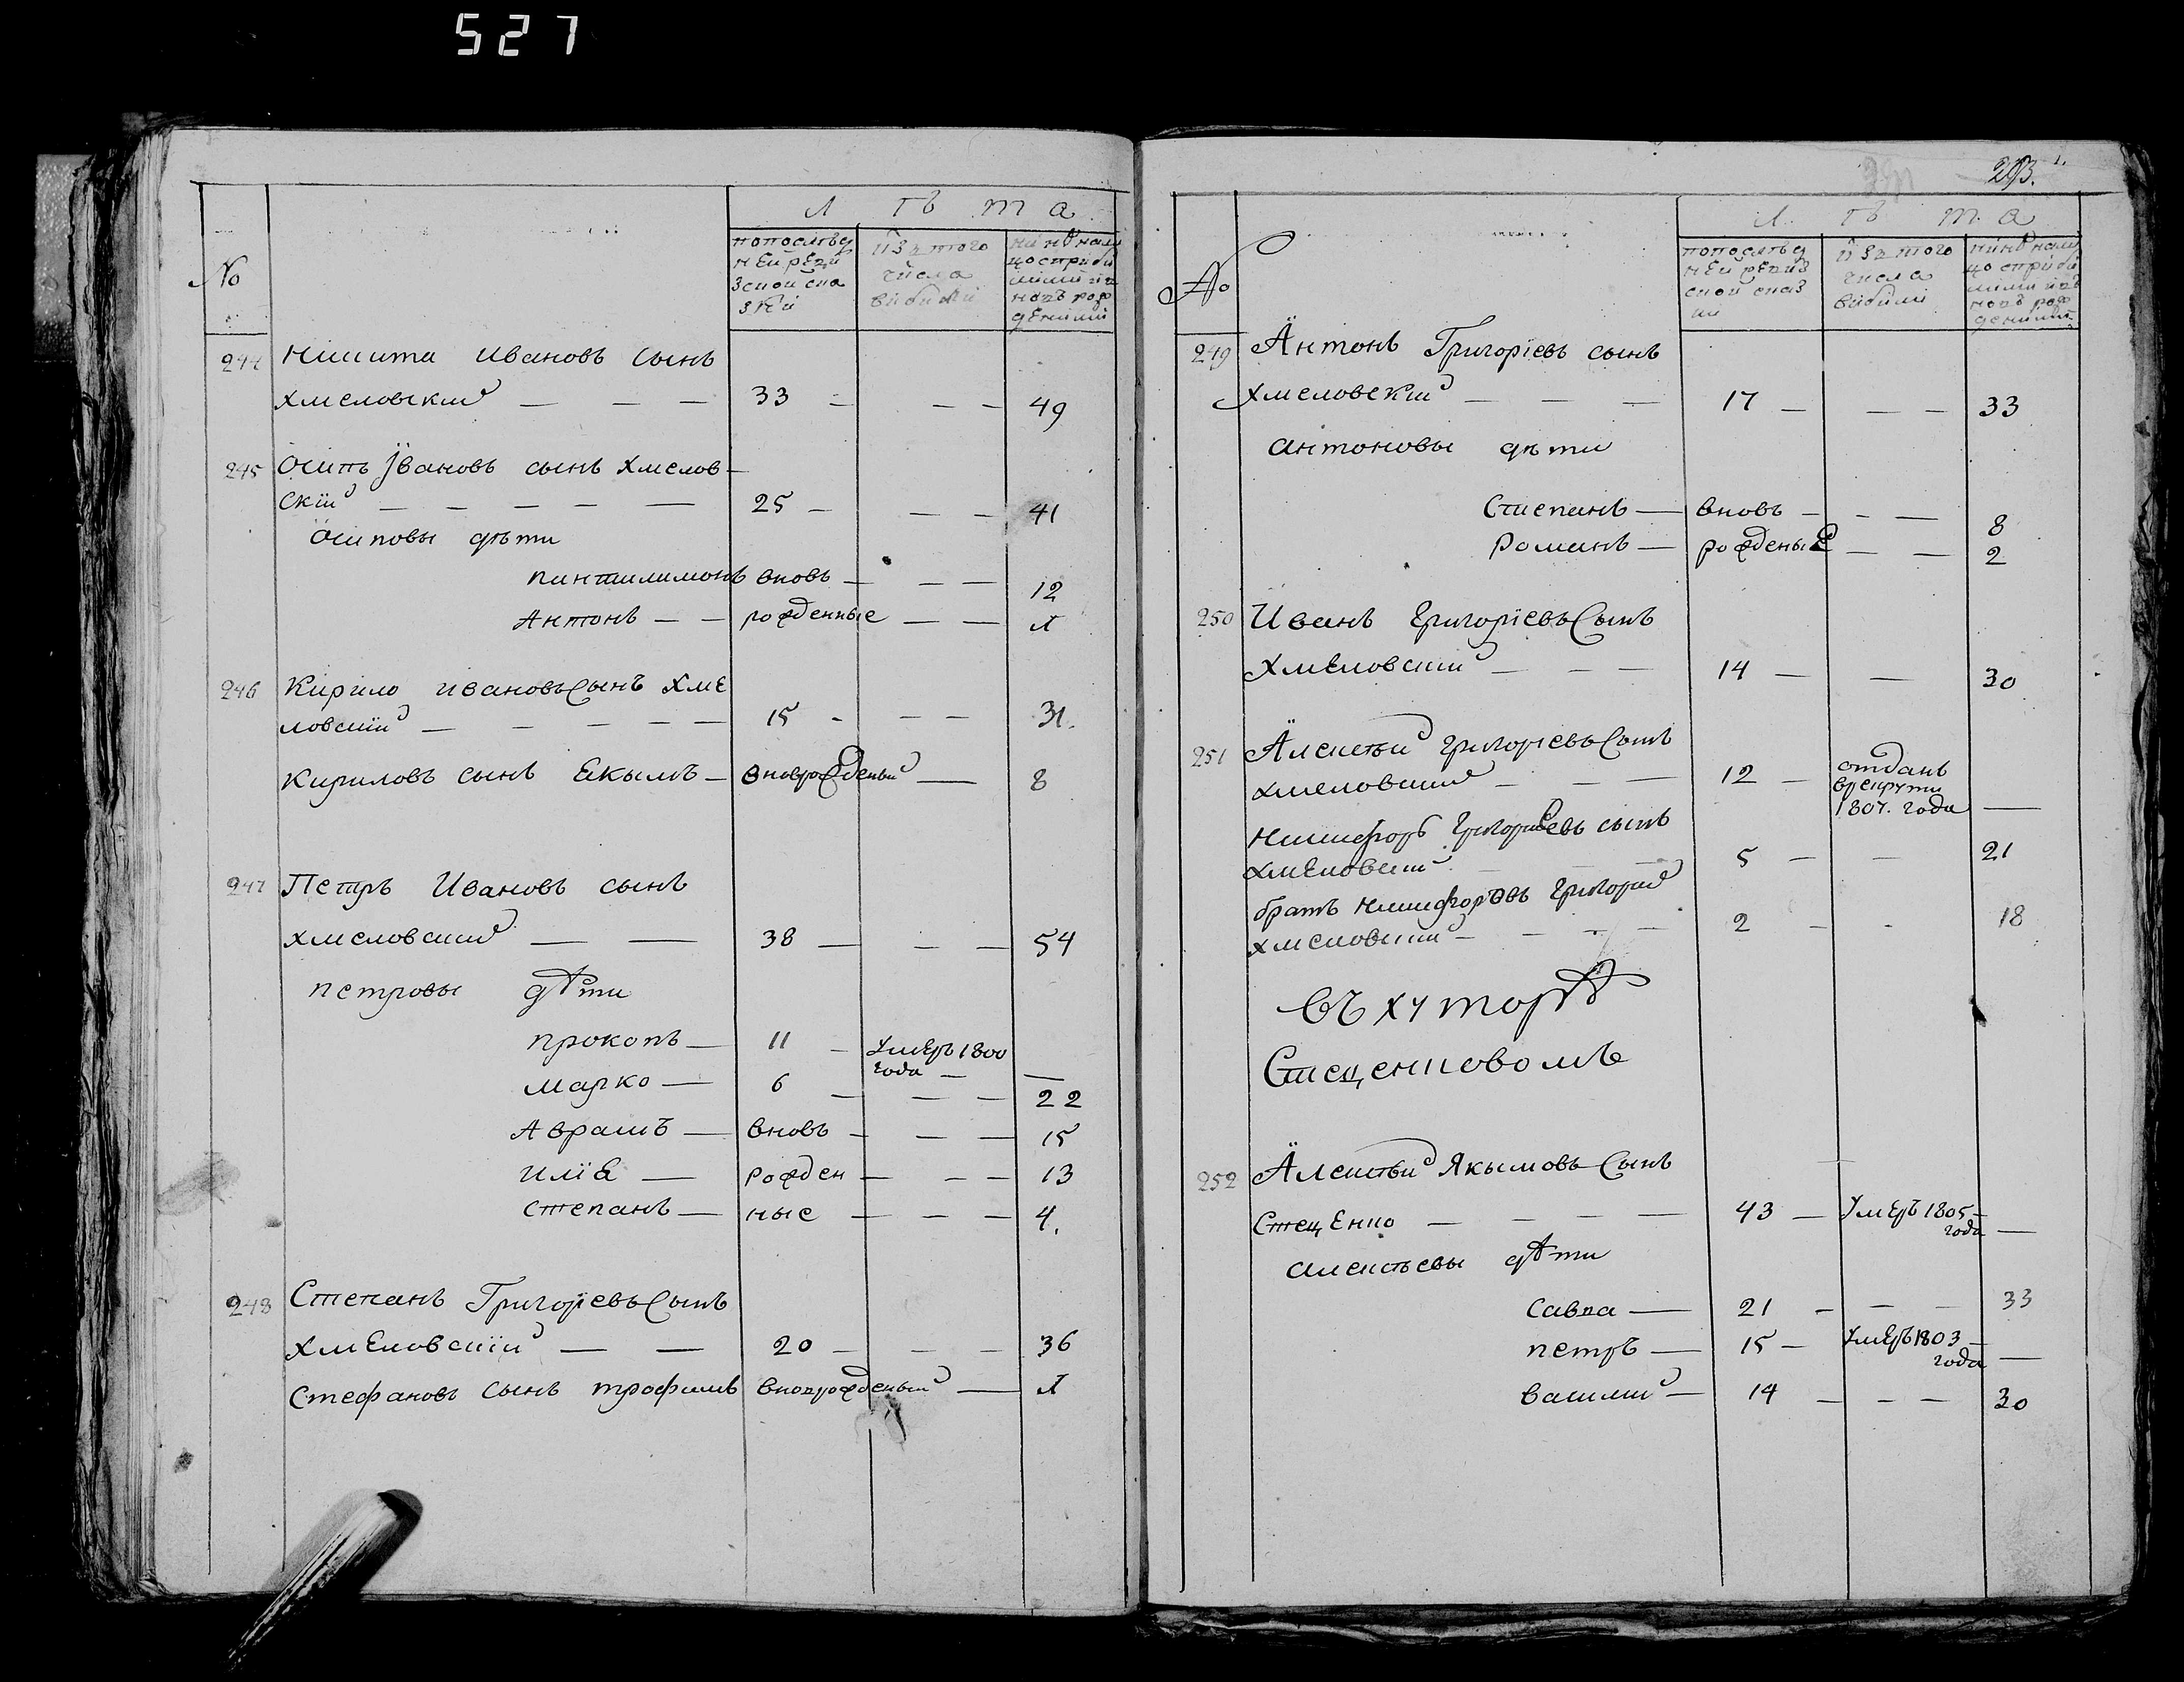 527
Л ѣ т а
№
попослѣд нейревизской сказкѣ
изътого числа выбыли
нынѣнали цосприбылимиивновьрожденными
244 Никита Ивановъ Сынъ
Хмеловский — — — 33 — — — 49
245 Осипъ Ивановъ сынъ Хмелов
ский — — — — — 25 — — — 41
Осиповы дѣти
пантилимонъ вновь — — — 12
Антонъ — — рожденные — — 1
246 Кирило ивановъ Сынъ Хме
ловский — — — — — 15 - — — 31.
Кириловъ сынъ Екымъ — вноврожденый — 8
247 Петръ Ивановъ сынъ
Хмеловский — — 38 — — — 54
петровы дѣти
прокопъ — 11 — умеръ 1800 года — —
марко — 6 — — — 22
Аврамъ — вновь — — — 15
илие — рожден — — — 13
степанъ — ные — — — 4.
248 Степанъ Григорiевъ Сынъ
Хмеловскiй — — 20 — — — 36
Стефановъ сынъ трофимъ вновьрожденый — 1
293.
Л ѣ т а
№
попослѣд ней ревизской сказки
изътого числа выбыли
нынѣнали цосприбылимиивновьрожденными
249 Антонъ Григорiевъ сынъ
Хмеловский — — — 17 — — — 33
антоновы дѣти
Степанъ — вновь — — — 8
Романъ — рожденые — — 2
250 Иванъ Григорiевъ Сынъ
Хмеловский — — — 14 — — 30
251 Алексѣй григорiевъ Сынъ
хмеловский — — — 12 — отданъ врекруты 1807. года —
Никифоръ Григориевъ сынъ
хмеловский — — — 5 — — 21
братъ никифоровъ Григорий
хмеловский — — — — 2 — - 18
въ хуторѣ
Стеценковомъ
252 Алексѣй Якымовъ Сынъ
Стеценко — — — — 43 — умеръ 1805 — года —
алексѣевы дѣти
Савва — 21 — — — 33
петръ — 15 — умеръ 1803 — года —
василий — 14 — — — 30